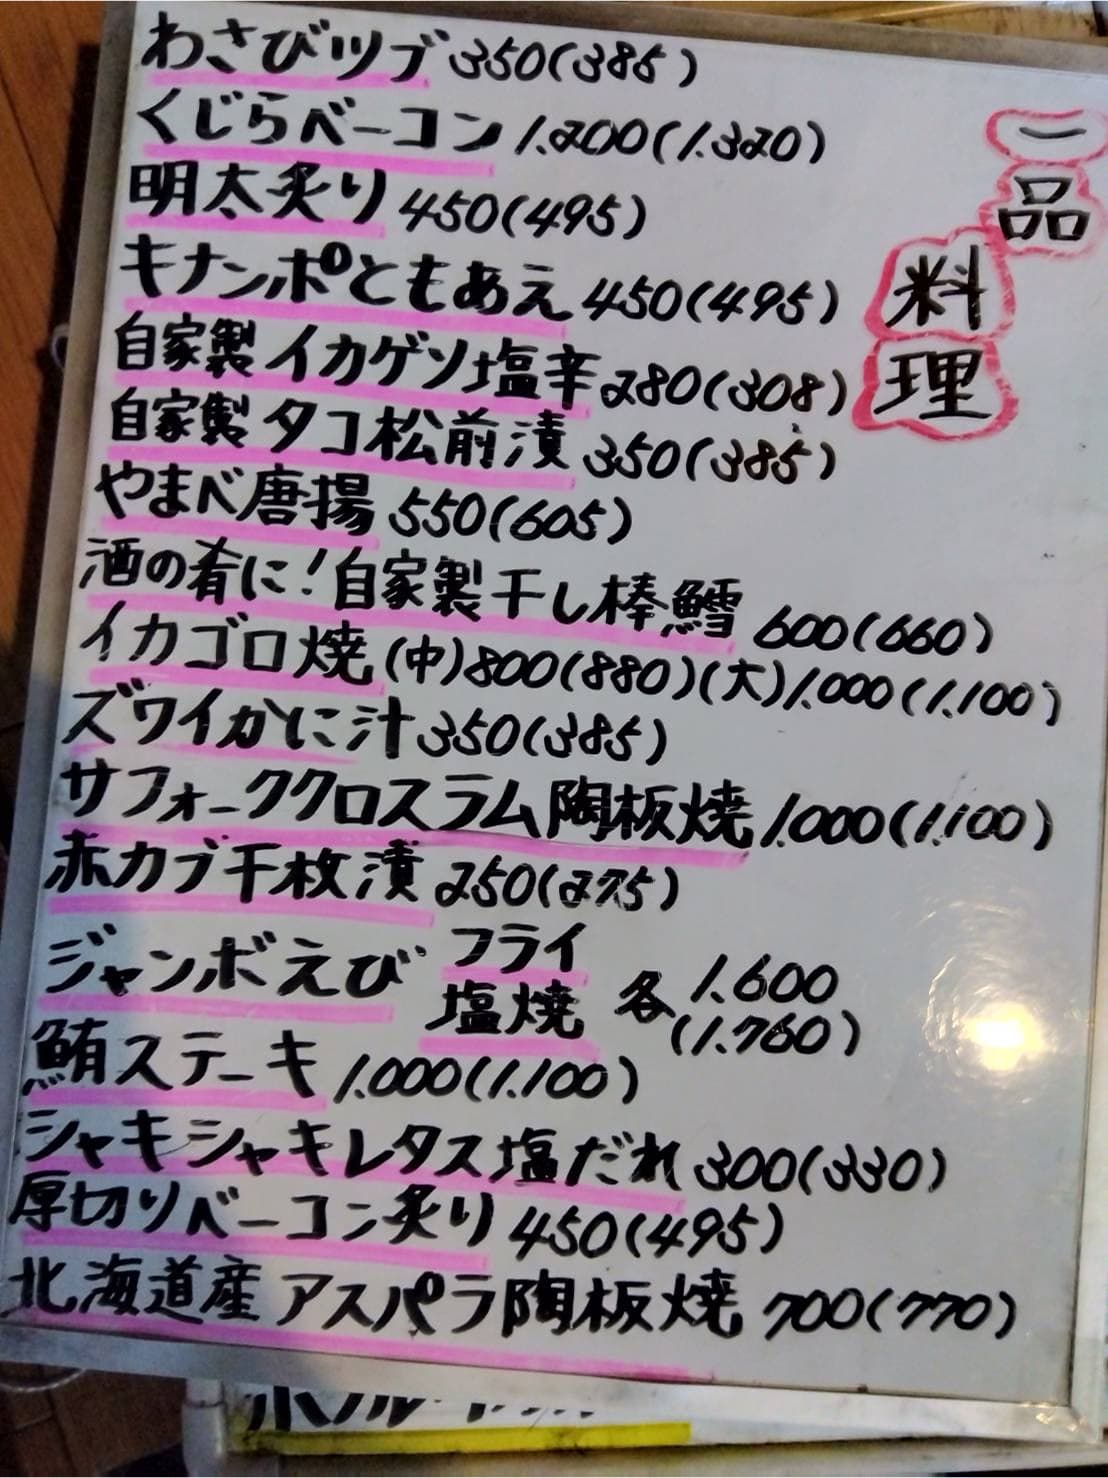 一品料理
わさびツブ 350(385)
くじらベーコン 1.200(1.320)
明太炙り 450(495)
キナンポともあえ 450(495)
自家製イカゲソ塩辛 280(308)
自家製タコ松前漬 350(385)
やまべ唐揚 550(605)
酒の肴に!自家製干し棒鱈 600(660)
イカゴロ焼(中)800(880)(大)1.000(1.100)
ズワイかに汁 350(385)
サフォーククロスラム陶板焼 1.000(1.100)
赤カブ千枚漬 250(275)
ジャンボえび フライ 塩焼 各 1.600 (1.760)
鮪ステーキ 1.000(1.100)
シャキシャキレタス塩だれ 300(330)
厚切りベーコン炙り 450(495)
北海道産アスパラ陶板焼 700(770)